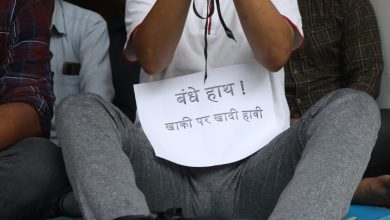 बंधे हाथ !
खाकी पर खादी हावी